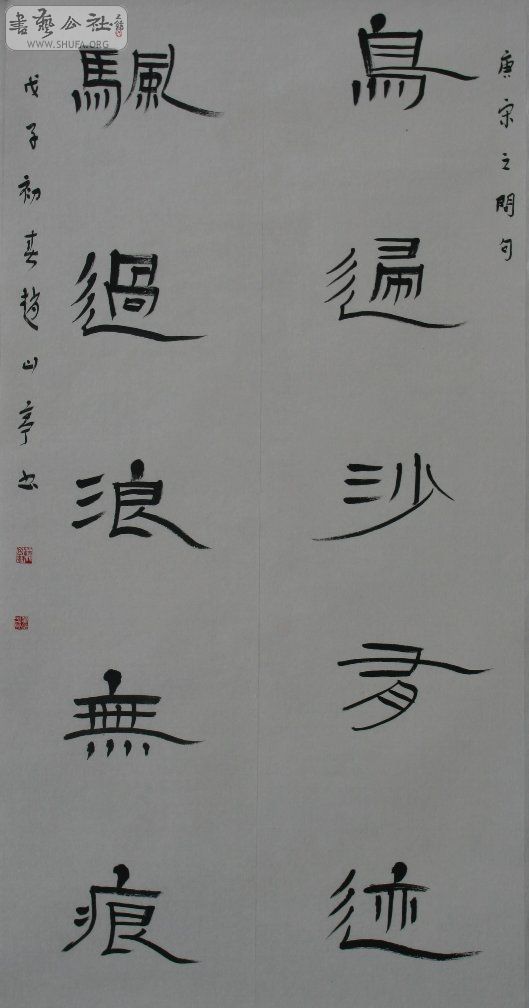 書藝公社
WWW.SHUFA.ORG
唐宋之問句
鳥歸沙有迹
颿過浪無痕
戊子初春趙山亭書